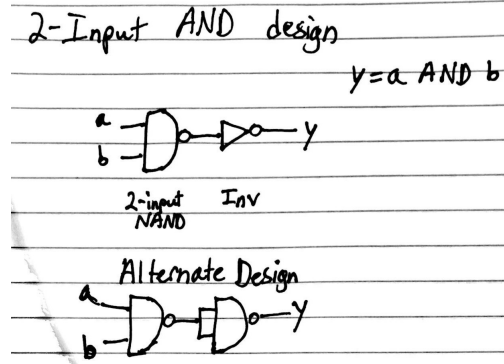 2-Input AND design
y=a AND b
a
b
y
2-input Inv
NAND
Alternate Design
a
b
y